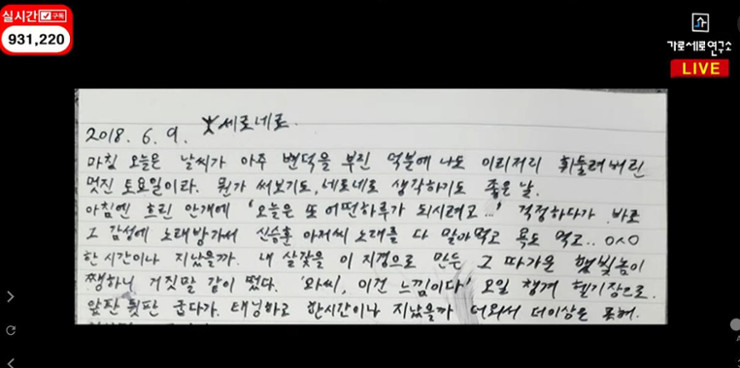 실시간 구독
931,220
가로세로연구소
LIVE
2018. 6. 9. 세로네로.
마침 오늘은 날씨가 아주 변덕을 부린 덕분에 나도 이리저리 휘둘려버린
멋진 토요일이라. 뭔가 써보기도, 네로네로 생각하기도 좋은 날.
아침엔 흐린 안개에 '오늘은 또 어떤하루가 되시려고...' 걱정하다가 바로
그 감성에 노래방가서 신승훈 아저씨 노래를 다 말아먹고 욕도 먹고.. 0ㅅ0
한 시간이나 지났을까. 내 살갗을 이 지경으로 만든 그 따가운 햇빛놈이
쨍하니 거짓말 같이 떴다. '와씨, 이건 느낌이다' 오일 챙겨 헬기장으로.
앞판 뒷판 굽다가. 태닝하고 한시간이나 지났을까 더워서 더이상은 못해.